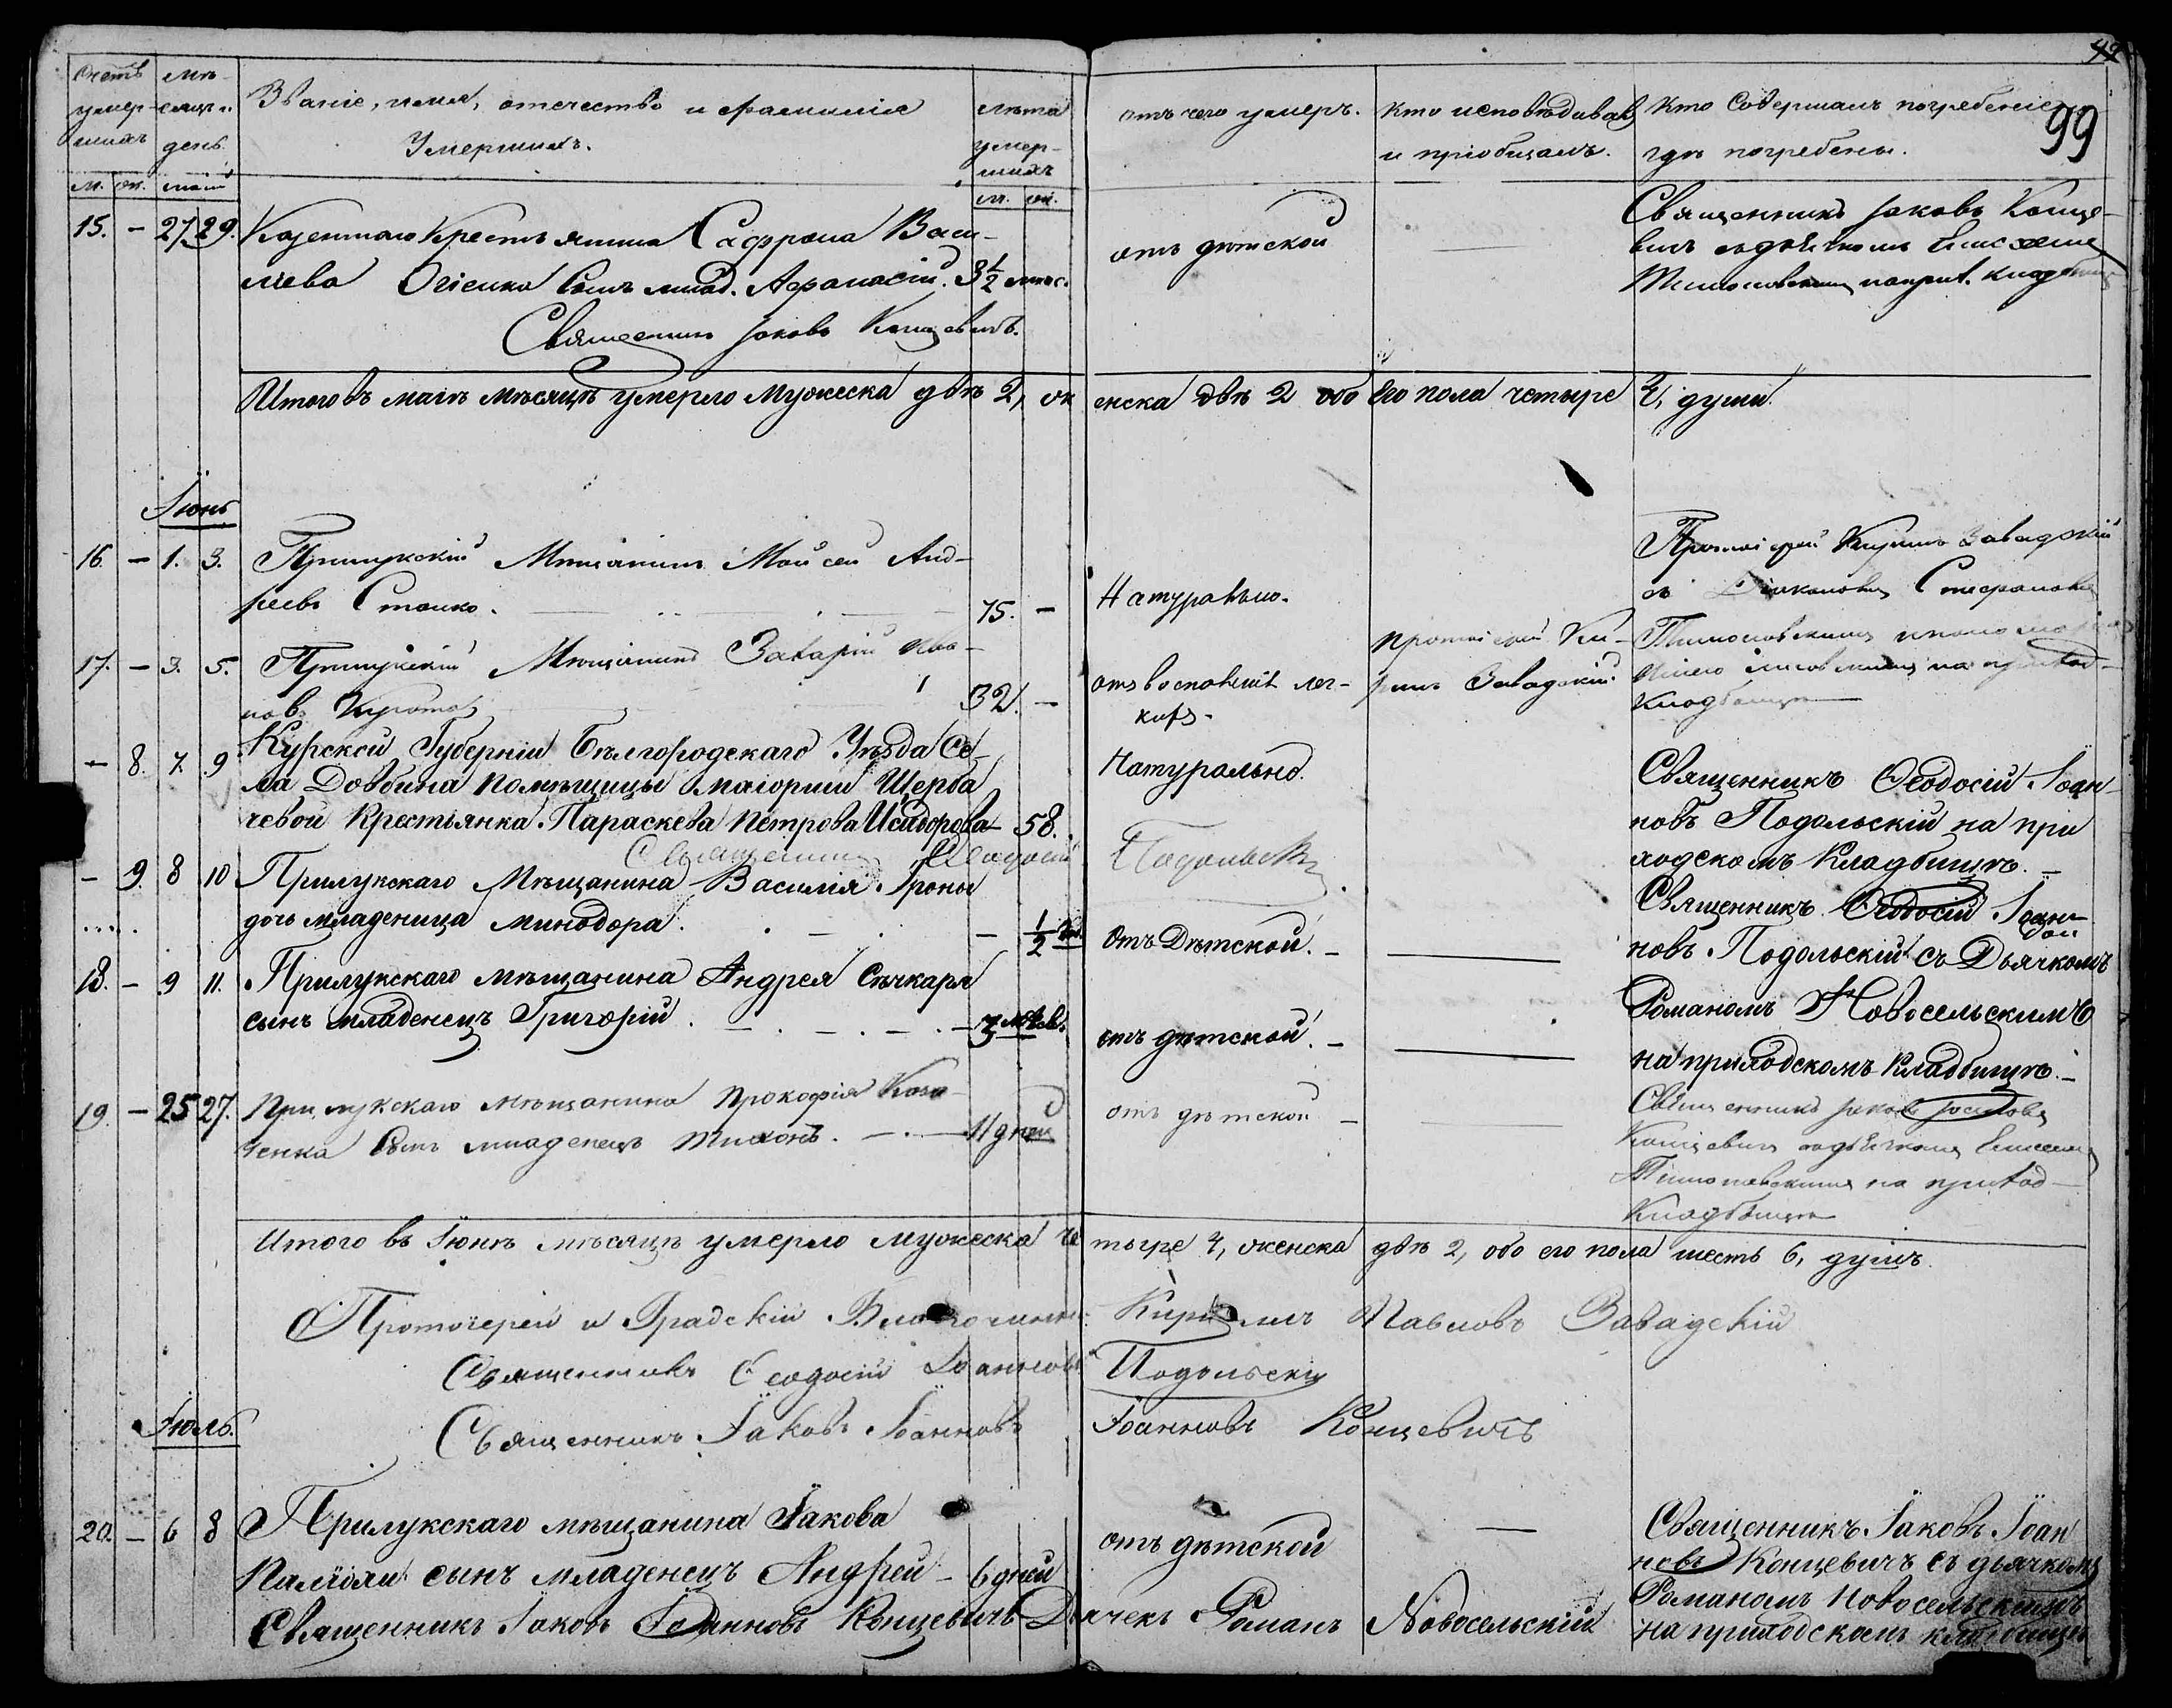 99
Счетъ умер-шихъ
мѣ-сяцъ и день.
Званіе, имя, отечество и фамилія
Умершихъ.
лѣта
умер-
шихъ
отъ чего умеръ.
кто исповѣдивалъ
и пріобщалъ.
кто Совершалъ погребеніе и
гдѣ погребены.
м. ж. май
м. ж.
15. — 27. 29. Казеннаго Крестьянина Сафрона Васи-
лева Огіенка сынъ млад. Афанасій. 3½ мѣс.
отъ дѣтской
Священникъ Іаковъ Конце-
вичъ съ дьячкомъ Елисеемъ
на прих. кладбищѣ
Священникъ Іаковъ Концевичъ.
Итого въ маѣ мѣсяцѣ умерло мужеска двѣ 2, женска двѣ 2 обо его пола четыре 4, души.
Іюнь
16 — 1. 3. Прилукскій Мѣщанинъ Мойсей Анд-
реевъ Станко. 75. —
Натурально.
Протоіерей Кирилъ Завадскій
съ Стефановы
17. — 3. 5. Прилукскій Мѣщанинъ Захарій Ива-
новъ 32. —
отъ воспаленія лег-
кихъ.
протоіерей Ки-
рилъ Завадскій
на приход-
кладбищѣ
— 8. 7. 9 Курской Губерніи Бѣлгородскаго Уѣзда Се-
ла Довбина помѣщицы маіорши Щерба
чевой Крестьянка Параскева Петрова Исидорова 58.
Натурально.
Священникъ Ѳеодосій Іоан-
новъ Подольскій на при
ходскомъ Кладбищѣ. —
Священникъ Ѳеодосій
Подольскій
— 9. 8 10 Прилукскаго Мѣщанина Василія Гроны
дочь младеница минодора. — ½
Отъ Дѣтской. —
Священникъ Ѳеодосій Іоан-
новъ Подольскій съ Дьячкомъ
18. — 9 11. Прилукскаго мѣщанина Андрея Сѣчкаря
сынъ младенецъ Григорій. 3 мѣсяц.
отъ дѣтской. —
Романомъ Новосельскимъ
на приходскомъ кладбищѣ. —
19. — 25 27. Прилукскаго мѣщанина Прокофія Коза-
ченка сынъ младенецъ Тихонъ. — 11 дней
отъ дѣтской —
Священникъ Іаковъ Іоанновъ
Концевичъ съ дьячкомъ Елисеемъ
на приход-
кладбищѣ
Итого въ Іюнѣ мѣсяцѣ умерло мужеска четыре 4, женска двѣ 2, обо его пола шесть 6, душъ.
Протоіерей и Градскій Благочинный Кирилъ Павловъ Завадскій
Священникъ Ѳеодосій Іоанновъ Подольскій
Священникъ Іаковъ Іоанновъ Іоанновъ Концевичъ
Іюль.
20. — 6 8 Прилукскаго мѣщанина Іакова
сынъ младенецъ Андрей — 6 дней
отъ дѣтской
—
Священникъ Іаковъ Іоан
новъ Концевичъ съ дьячкомъ
Романомъ Новосельскимъ
на приходскомъ кладбищѣ
Священникъ Іаковъ Іоанновъ Концевичъ Дьячекъ Романъ Новосельскій